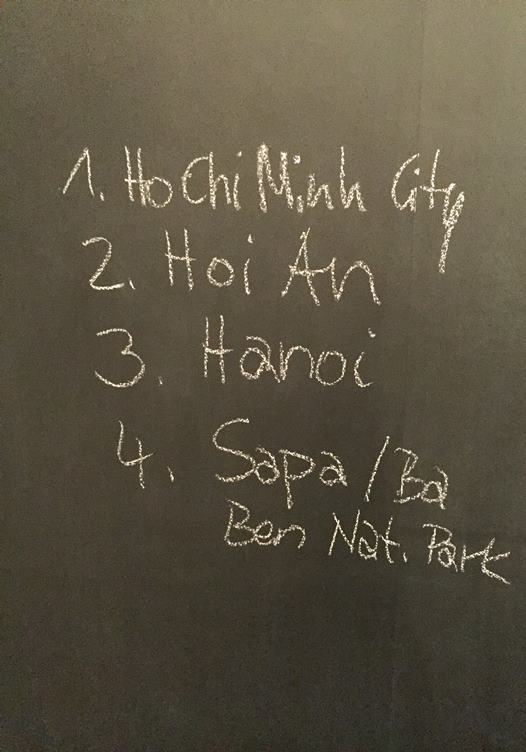 1. Ho Chi Minh City
2. Hoi An
3. Hanoi
4. Sapa / Ba
Ben Nat. Park